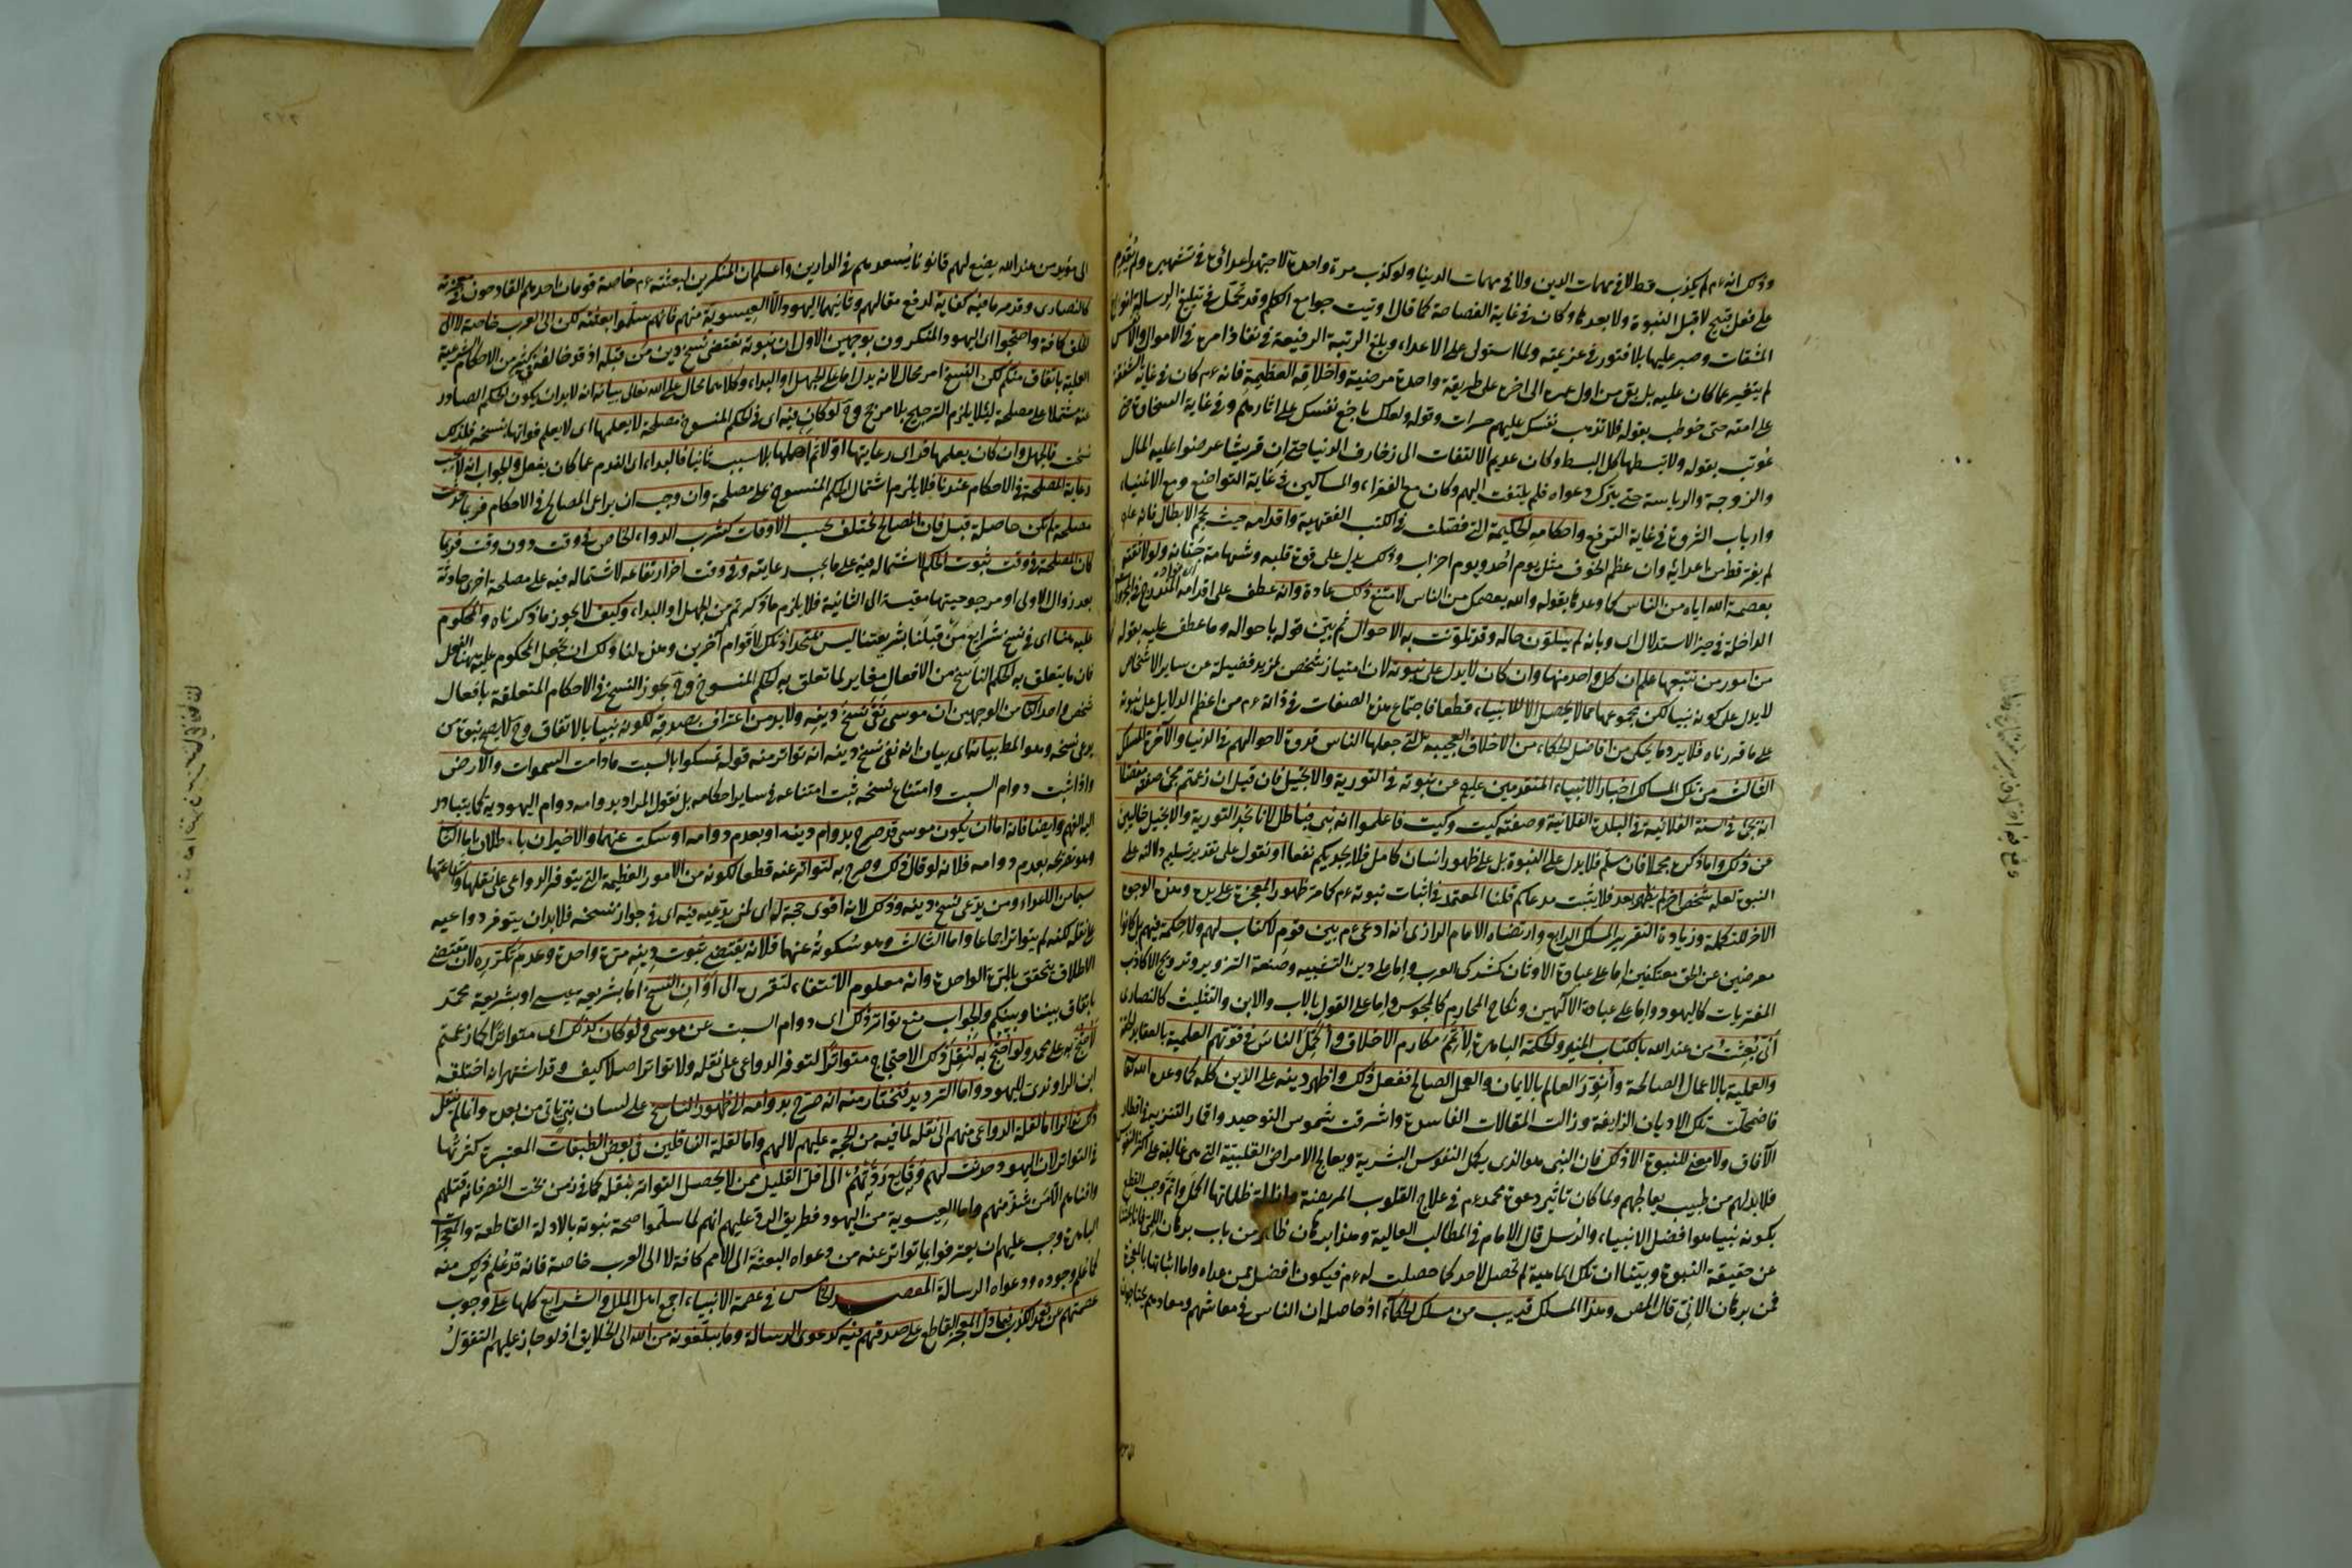 وذلك انه عم لم يكذب قط لا في مهمات الدين ولا في مهمات الدنيا ولو كذب مرة واحدة لاجتهد اعداؤه في تشهيره ولم يقدم
على فعل قبيح لا قبل النبوة ولا بعدها وكان في غاية الفصاحة كما قال اوتيت جوامع الكلم وقد تحمل في تبليغ الرسالة انواع
المشقات وصبر عليها بلا فتور في عزيمته ولما استولى على الاعداء وبلغ الرتبة الرفيعة في نفاذ امره في الاموال والانفس
لم يتغير عما كان عليه بل بقي من اول عمره الى آخره على طريقة واحدة مرضية واخلاقه العظيمة فانه عم كان في غاية الشفقة
على امته حتى خوطب بقوله فلا تذهب نفسك عليهم حسرات وقوله ولعلك باخع نفسك على اثارهم وفي غاية السخاوة حتى
عوتب بقوله ولا تبسطها كل البسط وكان عديم الالتفات الى زخارف الدنيا حتى ان قريشا عرضوا عليه المال
والزوجة والرياسة حتى يترك دعواه فلم يلتفت اليهم وكان مع الفقراء والمساكين في غاية التواضع ومع الاغنياء
وارباب الثروة في غاية الترفع واحكامه الحكيمة التي فصلت في الكتب الفقهية واقدامه حيث يحجم الابطال فانه عم
لم يفر قط من اعدائه وان عظم الخوف مثل يوم احد ويوم احزاب وذلك يدل على قوة قلبه وشهامة جنانه ولولا ثقته
بعصمة الله اياه من الناس كما وعده بقوله والله يعصمك من الناس لامتنع ذلك عادة وانه عطف على اقدامه المندرج في
الداخلة في حيز الاستدلال اى وبانه لم يتلون حاله وقد تلونت به الاحوال ثم بين قوله باحواله وما عطف عليه بقوله
من امور من تتبعها علم ان كل واحد منها وان كان لا يدل على نبوته لان امتياز شخص بمزيد فضيلة عن سائر الاشخاص
لا يدل على كونه نبيا لكن مجموعها مما لا يحصل الا للانبياء قطعا فاجتماع هذه الصفات في ذاته عم من اعظم الدلائل على نبوته
على ما قررناه فلا يرد ما يحكى من افاضل الحكماء من الاخلاق العجيبة التي جعلها الناس قدوة لاحوالهم في الدنيا والآخرة المسلك
الثالث من تلك المسالك اخبار الانبياء المتقدمين عليه عن نبوته في التورية والانجيل فان قيل ان زعمتم مجئ صفته مفصلا
انه يجئ في السنة الفلانية في البلدة الفلانية وصفته كيت وكيت فاعلموا انه نبي فباطل لانا نجد التورية والانجيل خاليين
عن ذلك واما ذكره مجملا فان سلم فلا يدل على النبوة بل على ظهور انسان كامل فلا يجديكم نفعا او نقول على تقدير تسليم دلالته على
النبوة لعله شخص آخر لم يظهر بعد فلا يثبت مدعاكم قلنا المعتمد في اثبات نبوته عم كما مر ظهور المعجزة على يده وهذه الوجوه
الاخر للتكملة وزيادة التقرير المسلك الرابع وارتضاه الامام الرازى انه ادعى عم بين قوم لا كتاب لهم ولا حكمة فيهم بل كانوا
معرضين عن الحق معتكفين اما على عبادة الاوثان كمشركى العرب واما على دين التشبيه وصنعة التزوير وترويج الاكاذيب
المفتريات كاليهود واما على عبادة الآلهين ونكاح المحارم كالمجوس واما على القول بالاب والابن والتثليث كالنصارى
أنى بعثت من عند الله بالكتاب المنير والحكمة الباهرة لأتمم مكارم الاخلاق وأكمل الناس في قوتهم العلمية بالعقايد الحقة
والعملية بالاعمال الصالحة وأنور العالم بالايمان والعمل الصالح ففعل ذلك واظهر دينه على الدين كله كما وعده الله
فاضمحلت تلك الاديان الزايغة وزالت المقالات الفاسدة واشرقت شموس التوحيد واقمار التنزيه في اقطار
الآفاق ولا معنى للنبوة الا ذلك فان النبي هو الذى يكمل النفوس البشرية ويعالج الامراض القلبية التي هي غالبة على اكثر النفوس
فلا بد لهم من طبيب يعالجهم ولما كان تأثير دعوة محمد عم في علاج القلوب المريضة وازالة ظلماتها اكمل واتم وجب القطع
بكونه نبيا هو افضل الانبياء والرسل قال الامام في المطالب العالية وهذا برهان ظاهر من باب برهان اللم
عن حقيقة النبوة وبينا ان تلك الماهية لم تحصل لاحد كما حصلت له عم فيكون افضل ممن عداه واما اثباتها بالمعجزة
فمن برهان الان قال المص وهذا المسلك قريب من مسلك الحكماء اذ حاصله ان الناس في معاشهم ومعادهم محتاجون
الى مؤيد من عند الله يضع لهم قانونا يسعدهم في الدارين واعلم ان المنكرين لبعثته عم خاصة قومان احدهما القادحون في معجزته
كالنصارى وقد مر ما فيه كفاية لدفع مقالهم وثانيهما اليهود الا العيسوية منهم فانهم سلموا بعثته لكن الى العرب خاصة لا الى
الخلق كافة واحتجوا اى اليهود المنكرون بوجهين الاول ان نبوته تقتضى نسخ دين من قبله اذ قد خالفه في كثير من الاحكام الشرعية
العملية باتفاق منكم لكن النسخ امر محال لانه يدل اما على الجهل او البداء وكلاهما محال على الله تعالى بيانه انه لا بد ان يكون الحكم الصادر
عنه مشتملا على مصلحة لئلا يلزم الترجيح بلا مرجح وح لو كان فيه اى في الحكم المنسوخ مصلحة لا يعلمها اى لا يعلم فواتها بنسخه فلذلك
نسخت فالجهل وان كان يعلمها فرأى رعايتها اولا ثم اهملها بلا سبب ثانيا فالبداء اى الندم عما كان يفعل والجواب انه لا يجب
رعاية المصلحة في الاحكام عندنا فلا يلزم اشتمال الحكم المنسوخ على مصلحة وان وجب ان يراعى المصالح في الاحكام فربما حدثت
مصلحة لم تكن حاصلة قبل فان المصالح تختلف بحسب الاوقات كشرب الدواء الخاص في وقت دون وقت فربما
كان المصلحة في وقت ثبوت الحكم لاشتماله فيه على ما يجب رعايته وفي وقت آخر ارتفاعه لاشتماله فيه على مصلحة اخرى حادثة
بعد زوال الاولى او مرجوحيتها مقيسة الى الثانية فلا يلزم ما ذكرتم من الجهل او البداء وكيف لا يجوز ما ذكرناه والمحكوم
عليه هنا اى في نسخ شرايع من قبلنا بشريعتنا ليس متحدا اذ تلك لاقوام آخرين وهذه لنا ولك ان تجعل المحكوم عليه هنا الفعل
فان ما يتعلق به الحكم الناسخ من الافعال مغاير لما تعلق به الحكم المنسوخ وح يجوز النسخ في الاحكام المتعلقة بافعال
شخص واحد الثانى من الوجهين ان موسى نفى نسخ دينه ولا بد من اعتراف بصدقه لكونه نبيا بالاتفاق وح لا يصح نبوة من
يدعى نسخه وهو المط بيانه اى بيان انه نفى نسخ دينه انه تواتر منه قوله تمسكوا بالسبت ما دامت السموات والارض
واذا ثبت دوام السبت وامتناع نسخه ثبت امتناعه في ساير احكامه بل نقول المراد بدوامه دوام اليهودية كما يتبادر
اليه الفهم وايضا فانه اما ان يكون موسى قد صرح بدوام دينه او بعدم دوامه او سكت عنهما والاخيران باطلان اما الثانى
وهو تصريحه بعدم دوامه فلانه لو قال ذلك وصرح به لتواتر عنه قطعا لكونه من الامور العظيمة التي يتوفر الدواعى على نقلها واشاعتها
سيما من الاعداء ومن يدعى نسخ دينه وذلك لانه اقوى حجة له اى لمن يدعيه فيه اى في جواز نسخه فلا بد ان يتوفر دواعيه
على نقله لكنه لم يتواتر اجماعا واما الثالث وهو سكوته عنهما فلانه يقتضى ثبوت دينه مرة واحدة وعدم تكرره لان مقتضى
الاطلاق يتحقق بالمرة الواحدة وانه معلوم الانتفاء لتقرره الى اوان النسخ اما بشريعة عيسى او بشريعة محمد
باتفاق بيننا وبينكم والجواب منع تواتر ذلك اى دوام السبت عن موسى ولو كان كذلك اى متواترا كما زعمتم
لاحتج به على محمد ولو احتج به لنقل ذلك الاحتجاج متواترا لتوفر الدواعى على نقله ولا تواتر اصلا كيف وقد اشتهر انه اختلقه
ابن الراوندى لليهود واما الترديد فنختار منه انه صرح بدوامه الى ظهور الناسخ على لسان نبي يأتى من بعده وانما لم ينقل
ذلك تواترا اما لقلة الدواعى منهم الى نقله لما فيه من الحجة عليهم لا لهم واما لقلة الناقلين في بعض الطبقات المعتبرة كثرتها
في التواتر لان اليهود حدثت لهم وقايع ردتهم الى اقل القليل ممن لا يحصل التواتر بنقله كما في زمن بخت النصر فانه قتلهم
وافناهم الا من شذ منهم واما العيسوية من اليهود فطريق الرد عليهم انهم لما سلموا صحة نبوته بالادلة القاطعة والمعجزات
الباهرة وجب عليهم ان يعترفوا بما تواتر عنه من دعواه البعثة الى الامم كافة لا الى العرب خاصة فانه قد علم ذلك منه
كما علم وجوده ودعواه الرسالة المقصد الخامس في عصمة الانبياء اجمع اهل الملل والشرايع كلها على وجوب
عصمتهم عن تعمد الكذب فيما دل المعجز القاطع على صدقهم فيه كدعوى الرسالة وما يبلغونه من الله الى الخلايق اذ لو جاز عليهم التقول